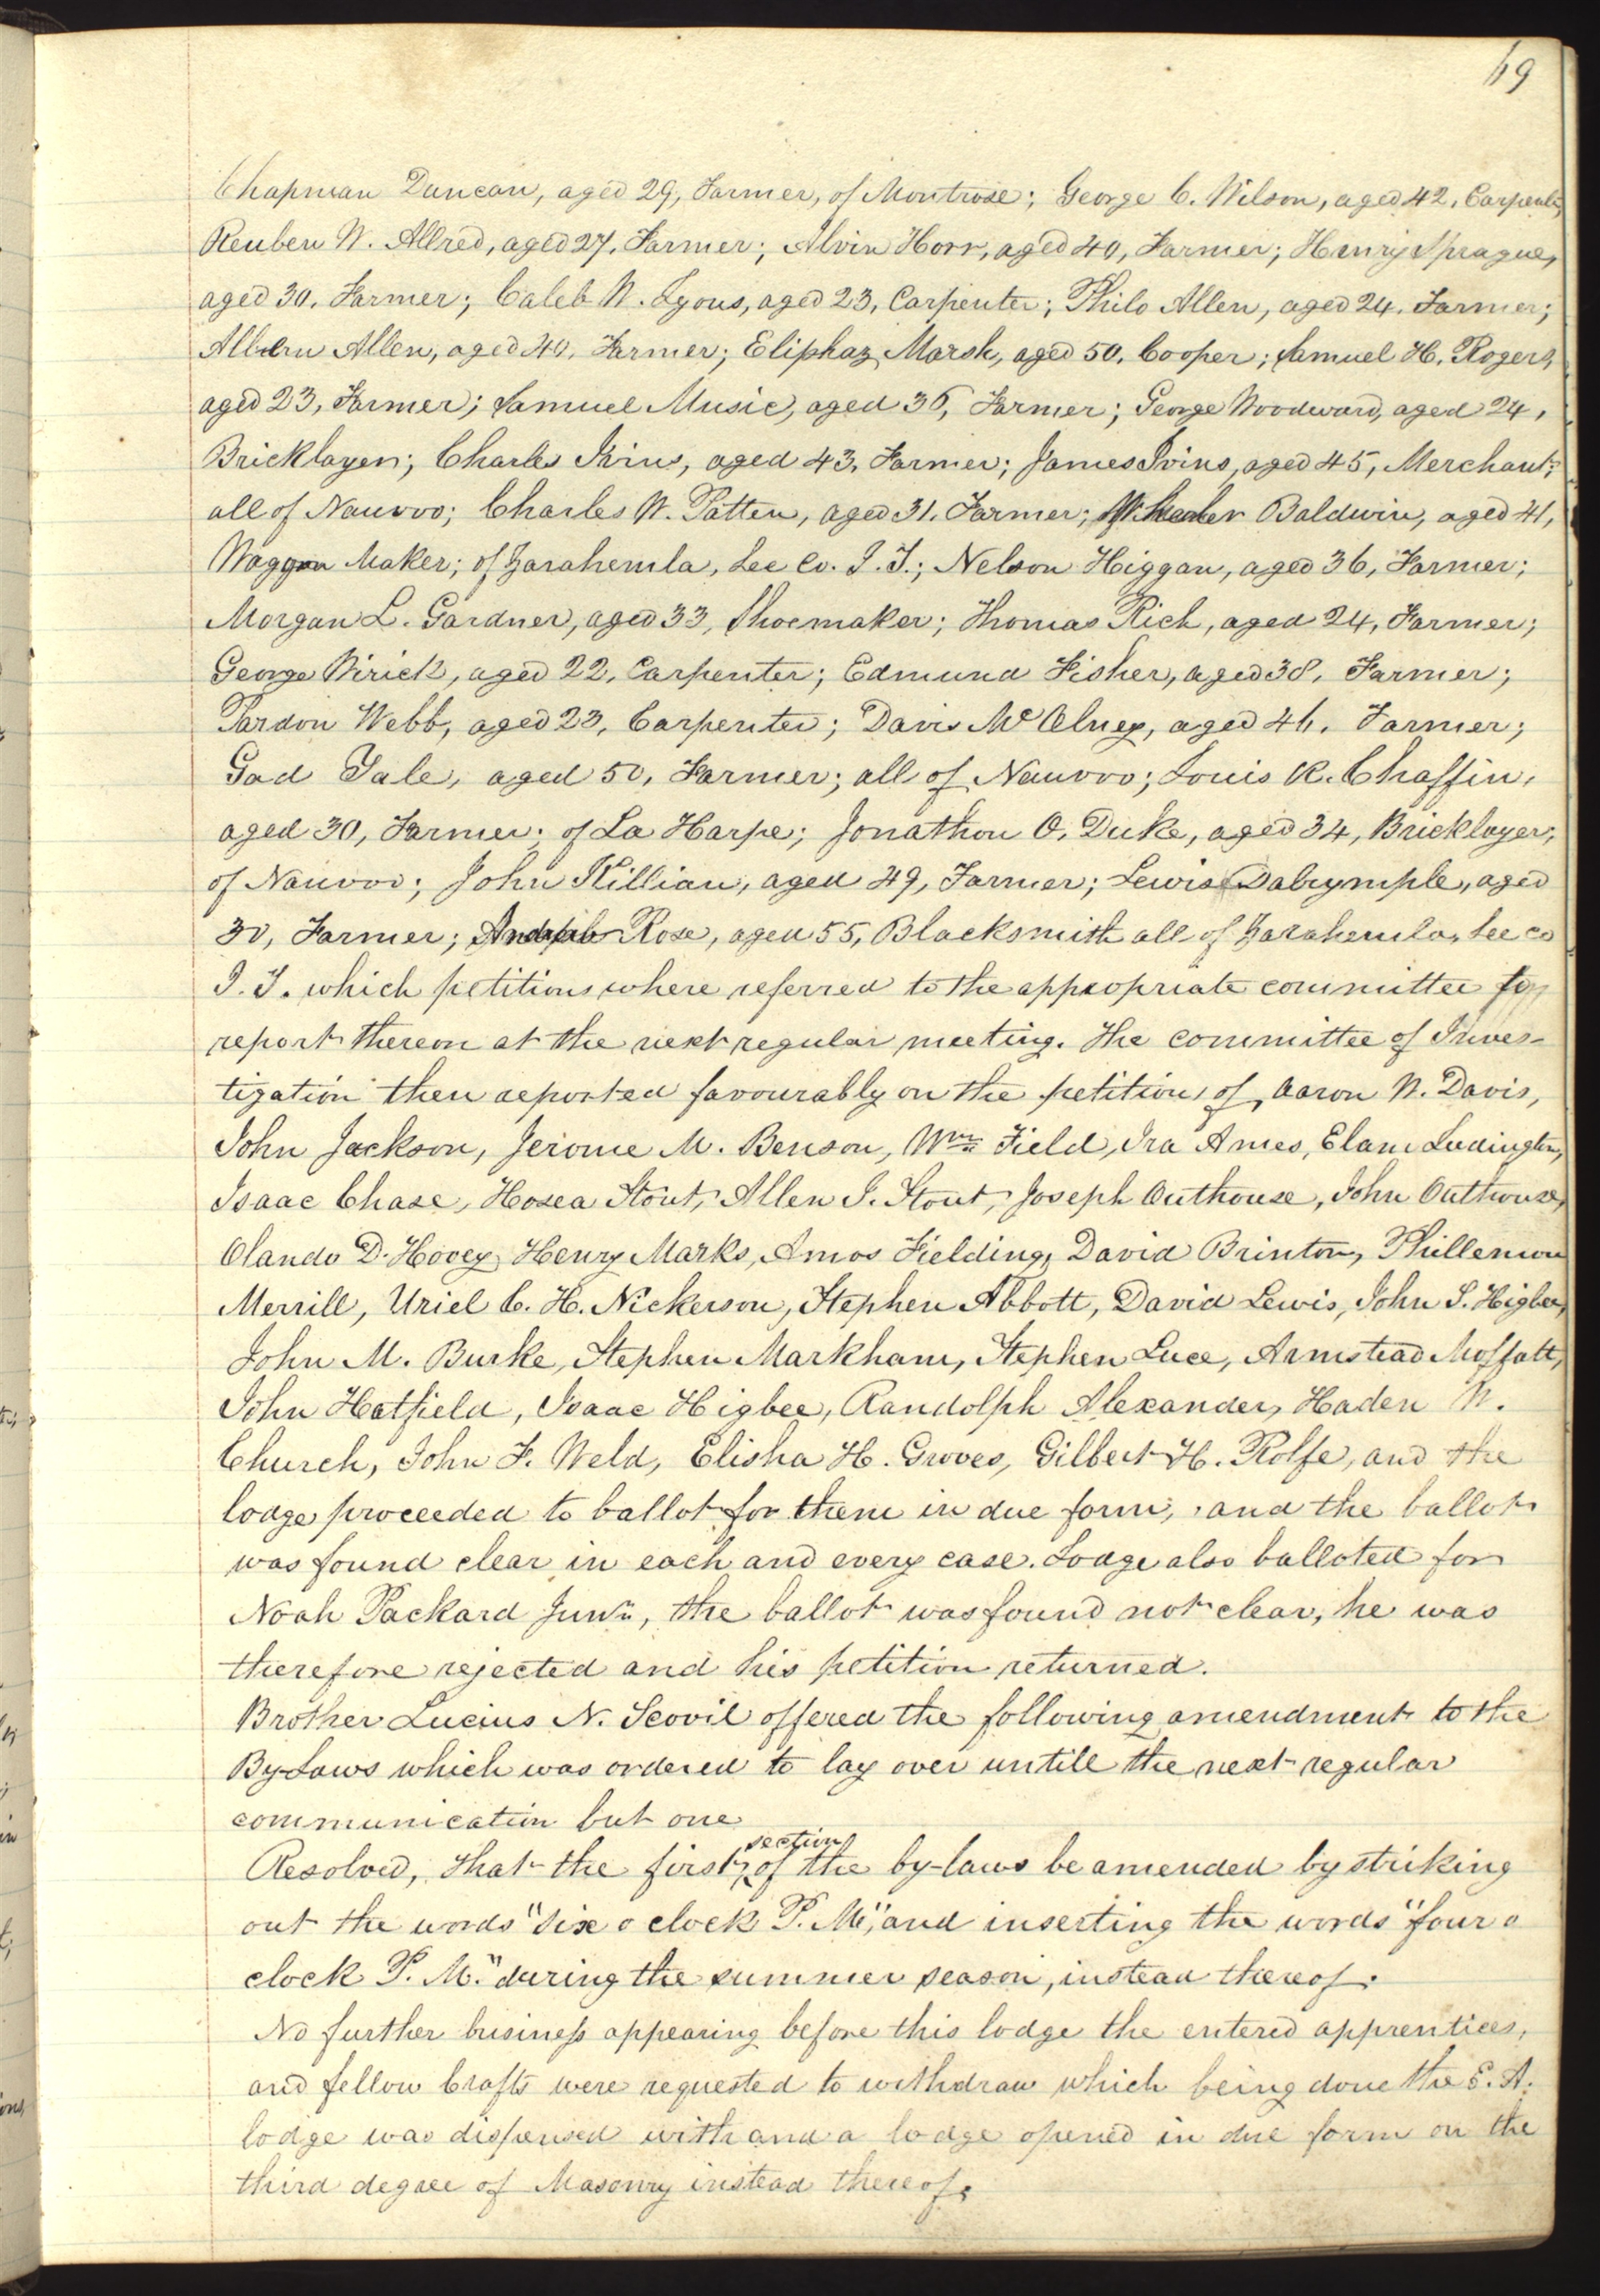 69
Chapman Duncan, aged 29, Farmer, of Montrose; George C. Wilson, aged 42, Carpenter,
Reuben W. Allred, aged 27, Farmer; Alvin Horr, aged 40, Farmer; Henry Sprague,
aged 30, Farmer; Caleb W. Lyons, aged 23, Carpenter; Philo Allen, aged 24, Farmer;
Allen, aged 40, Farmer; Eliphaz Marsh, aged 50, Cooper; Samuel H. Rogers,
aged 23, Farmer; Samuel Music, aged 36, Farmer; George Woodward, aged 24,
Bricklayer; Charles Ivins, aged 43, Farmer; James Ivins, aged 45, Merchant;
all of Nauvoo; Charles W. Patten, aged 31, Farmer; Wheeler Baldwin, aged 41,
Waggon Maker; of Zarahemla, Lee Co. I. T.; Nelson Higgan, aged 36, Farmer;
Morgan L. Gardner, aged 33, Shoemaker; Thomas Rich, aged 24, Farmer;
George Wirick, aged 22, Carpenter; Edmund Fisher, aged 38, Farmer;
Pardon Webb, aged 23, Carpenter; Davis McOlney, aged 46, Farmer;
Gad Yale, aged 50, Farmer; all of Nauvoo; Louis R. Chaffin,
aged 30, Farmer; of La Harpe; Jonathon O. Duke, aged 34, Bricklayer;
of Nauvoo; John Killian, aged 49, Farmer; Lewis Dalrymple, aged
30, Farmer; Rose, aged 55, Blacksmith all of Zarahemla, Lee co
I. T. which petitions where referred to the appropriate committee to
report thereon at the next regular meeting. The committee of Inves-
tigation then reported favourably on the petitions of, Aaron W. Davis,
John Jackson, Jerome M. Benson, Wm Field, Ira Ames, Elam Ludington,
Isaac Chase, Hosea Stout, Allen J. Stout, Joseph Outhouse, John Outhouse,
Olando D. Hovey, Henry Marks, Amos Fielding, David Brinton, Phillemon
Merrill, Uriel C. H. Nickerson, Stephen Abbott, David Lewis, John S. Higbee,
John M. Burke, Stephen Markham, Stephen Luce, Armstead Moffatt,
John Hatfield, Isaac Higbee, Randolph Alexander, Haden W.
Church, John F. Weld, Elisha H. Groves, Gilbert H. Rolfe, and the
lodge proceeded to ballot for them in due form, and the ballot
was found clear in each and every case. Lodge also balloted for
Noah Packard Junr, the ballot was found not clear, he was
therefore rejected and his petition returned.
Brother Lucius N. Scovil offered the following amendment to the
By-Laws which was ordered to lay over untill the next regular
communication but one
section
Resolved, that the first of the by-laws be amended by striking
out the words "six o clock P. M", and inserting the words "four o
clock P. M." during the summer season, instead thereof.
No further business appearing before this lodge the entered apprentices,
and fellow Crafts were requested to withdraw which being done the E. A.
lodge was dispensed with and a lodge opened in due form on the
third degree of Masonry instead thereof.